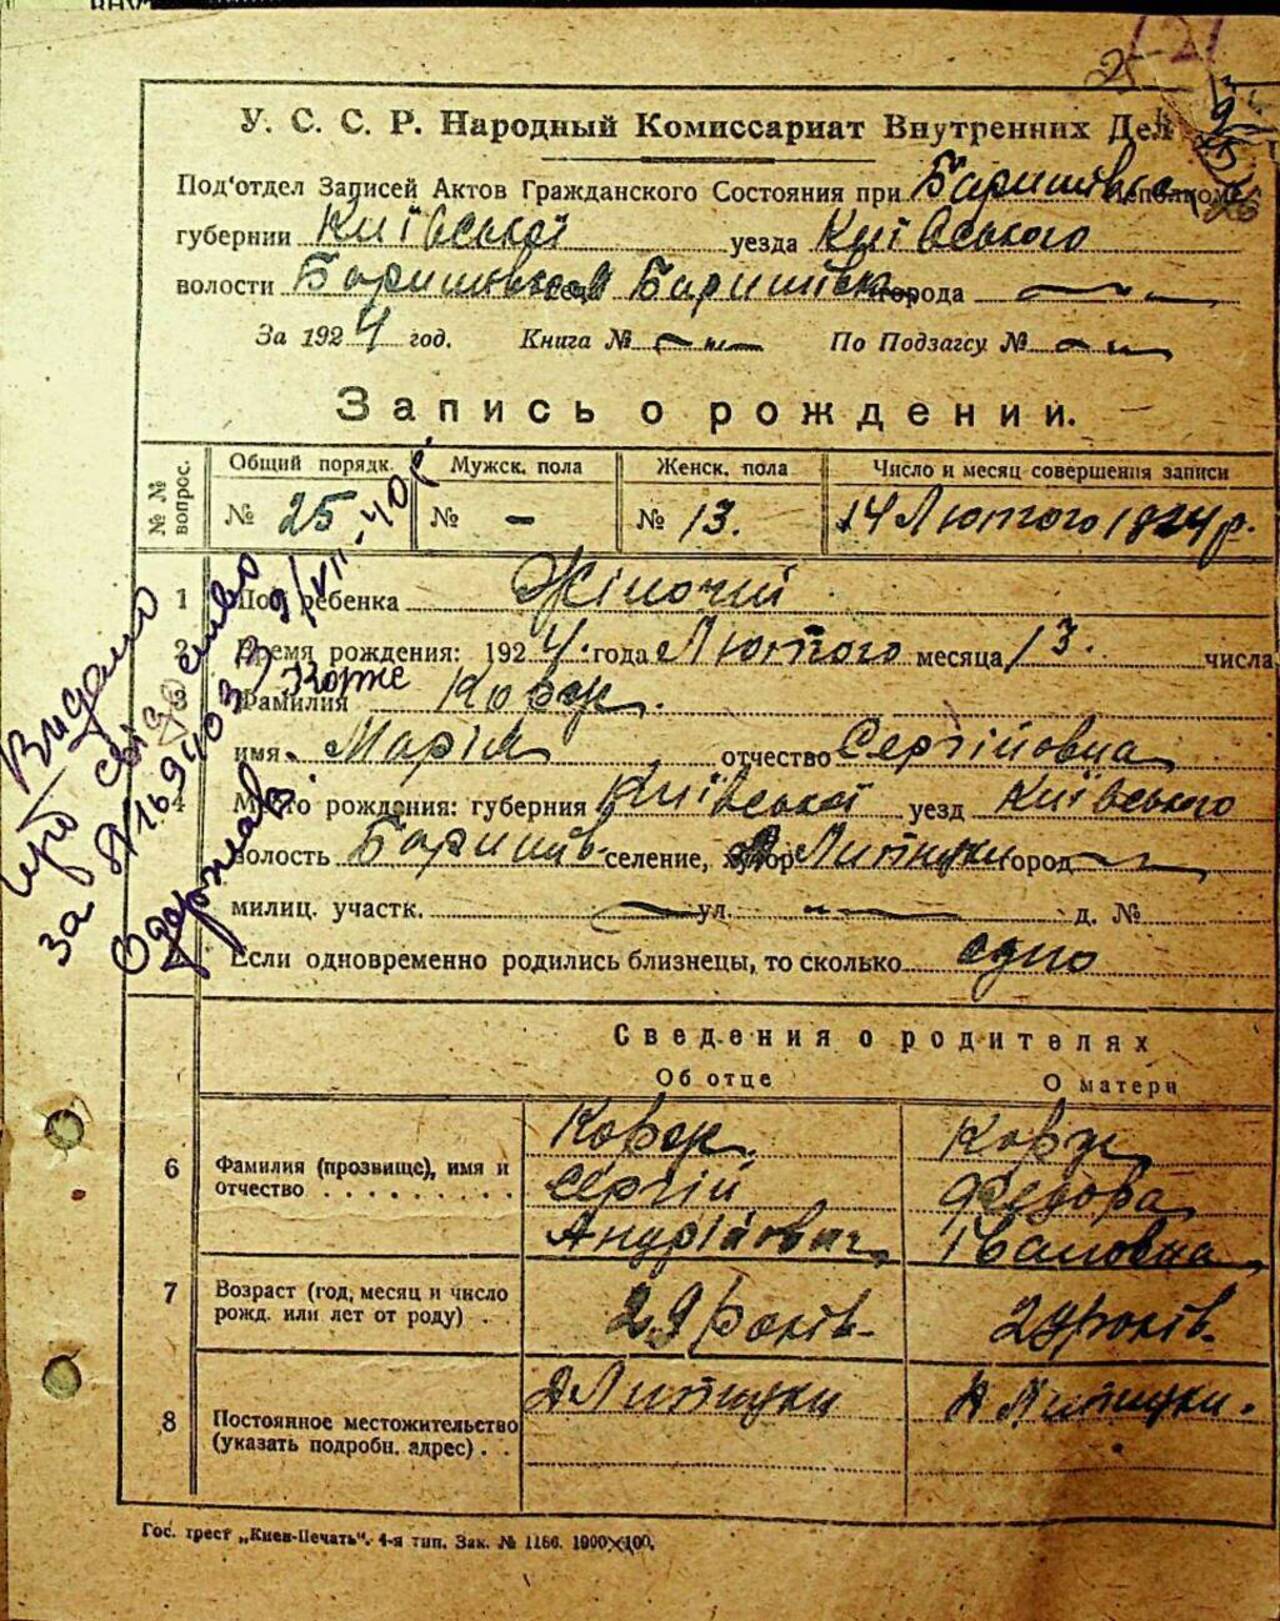 У. С. С. Р. Народный Комиссариат Внутренних Дел
Под'отдел Записей Актов Гражданского Состояния при Баришівск Исполкоме
губернии Київської уезда Київського
волости Баришівської села Баришівка города
За 1924 год. Книга № По Подзагсу №
Запись о рождении.
№ № вопрос.
Общий порядк. Мужск. пола Женск. пола Число и месяц совершения записи
№ 25 № - № 13. 14 Лютого 1924 р.
1 Пол ребенка Жіночій
2 Время рождения: 1924. года Лютого месяца 13. числа
Корж
3 Фамилия Корж.
имя Марія отчество Сергійовна
4 Место рождения: губерния Київської уезд Київського
волость Баришів. селение, хутор Липнуки город
милиц. участк. ул. д. №
Если одновременно родились близнецы, то сколько одно
Видано
про свідоцтво
за №
9/VII-40 р.
Одержав
Сведения о родителях
Об отце О матери
6 Фамилия (прозвище), имя и отчество
Корж Сергій Андрійович
Корж Федора Івановна
7 Возраст (год, месяц и число рожд. или лет от роду)
29 років 29 років.
8 Постоянное местожительство (указать подробн. адрес)
Гос. трест „Киев-Печать". 4-я тип. Зак. № 1166. 1000×100.